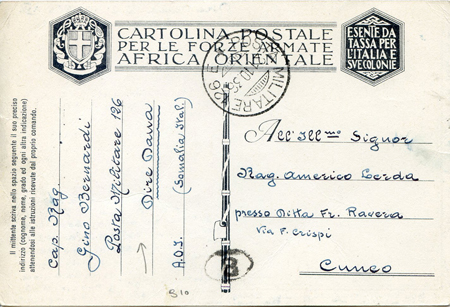 CARTOLINA POSTALE
PER LE FORZE ARMATE
AFRICA ORIENTALE
ESENTE DA
TASSA PER
L'ITALIA E
SVE COLONIE
MILITARE 126 E
Il mittente scriva nello spazio seguente il suo preciso
indirizzo (cognome, nome, grado ed ogni altra indicazione)
attenendosi alle istruzioni ricevute dal proprio comando.
Cap. Rag
Gino Bernardi
Posta Militare 126
Dire Daua
(Somalia Ital.)
A.O.I.
All'Ill mo Signor
Rag. Americo Cerda
presso Ditta Fr. Ravera
Via F. Crispi
Cuneo